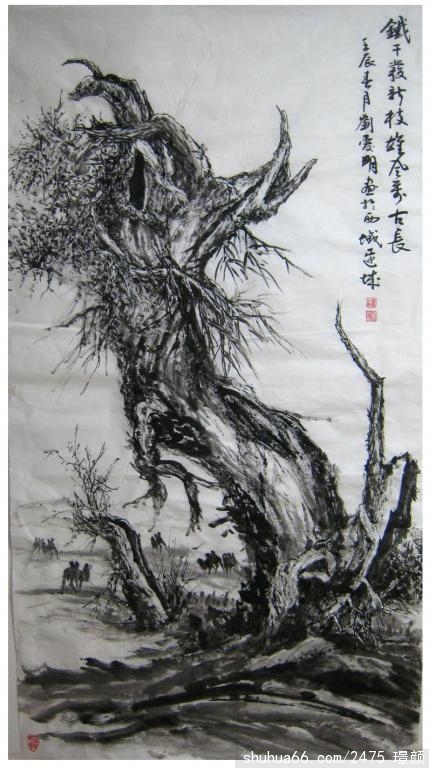 鐵干發新枝雄风萬古長
壬辰春月劉雲明畫於西域边城
shuhua66.com/2475 璟颜